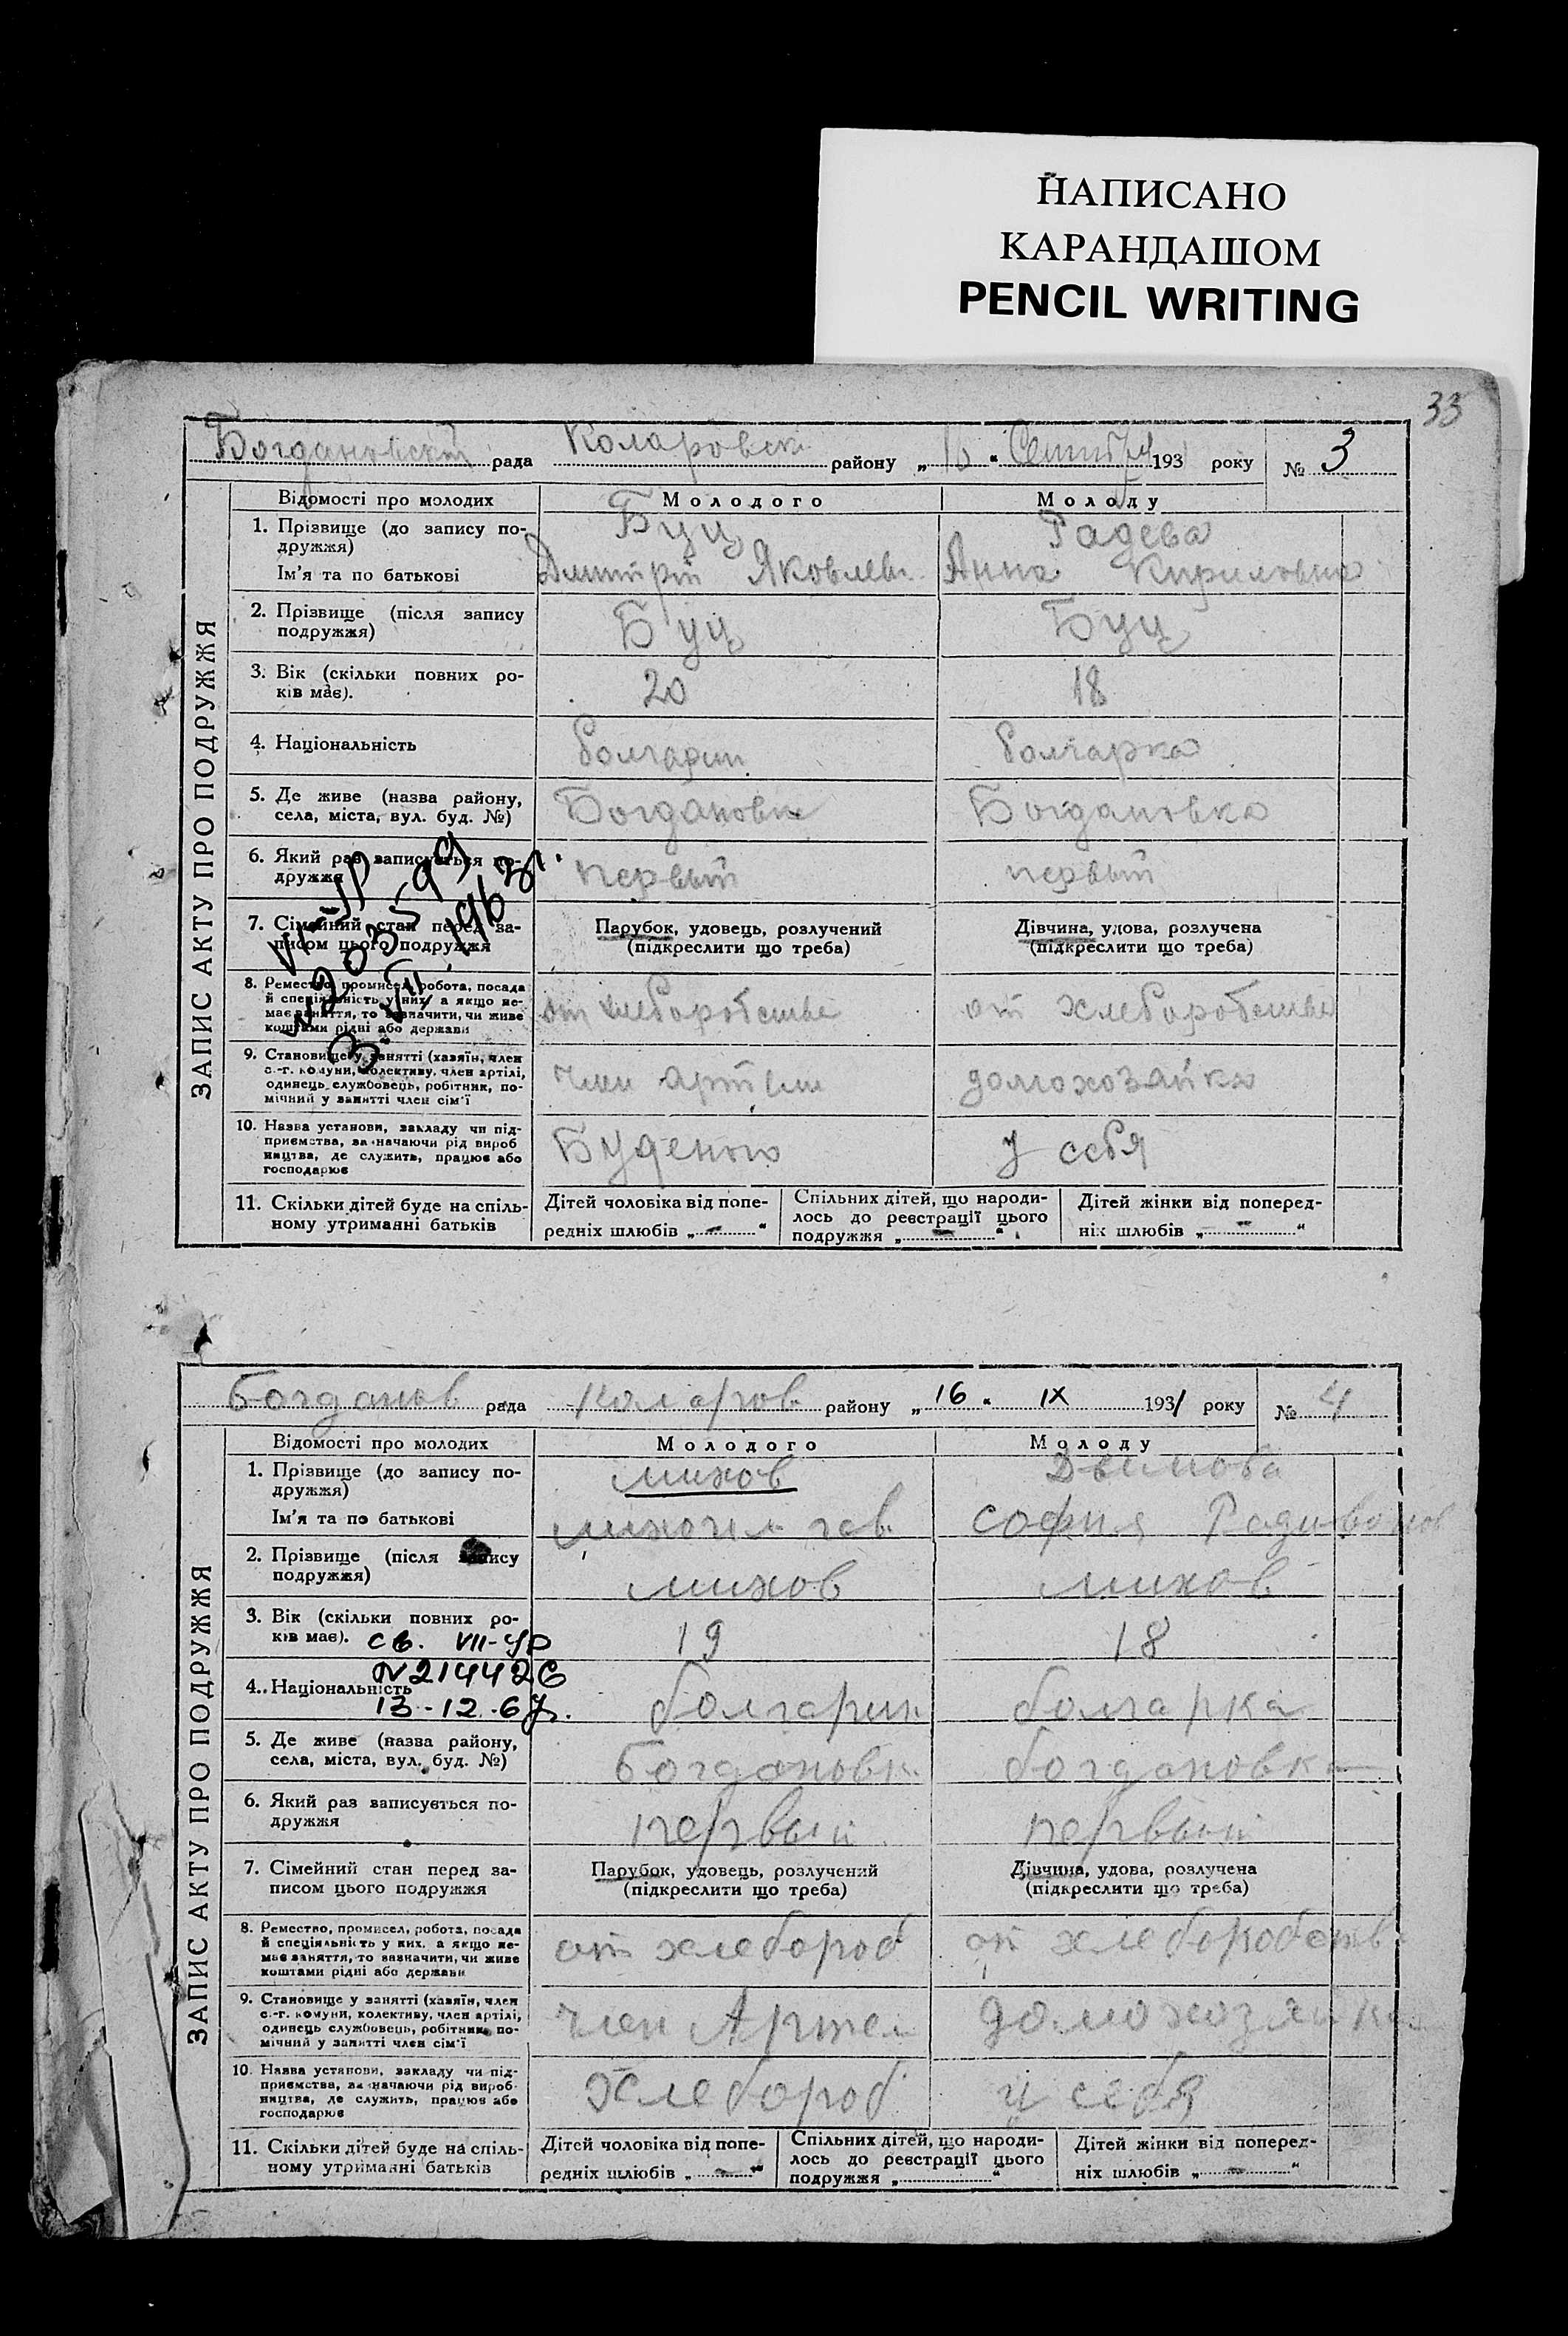 НАПИСАНО
КАРАНДАШОМ
PENCIL WRITING
33
Богдановский рада Коларовск району „ “ Сентября 193 року № 3
ЗАПИС АКТУ ПРО ПОДРУЖЖЯ
Відомості про молодих Молодого Молоду
1. Прізвище (до запису по-
дружжя) Буц Радева
Ім'я та по батькові Дмитрий Яковлев Анна Кириловна
2. Прізвище (після запису
подружжя) Буц Буц
3. Вік (скільки повних ро-
ків має). 20 18
4. Національність болгарин болгарка
5. Де живе (назва району,
села, міста, вул. буд. №) Богдановка Богдановка
6. Який раз записується по-
дружжя первый первый
7. Сімейний стан перед за-
писом цього подружжя
Парубок, удовець, розлучений
(підкреслити що треба)
Дівчина, удова, розлучена
(підкреслити що треба)
8. Ремество, промисел, робота, посада
й спеціяльність у них, а якщо не-
має заняття, то зазначити, чи живе
коштами рідні або держави
от хлеборобства от хлеборобства
9. Становище у занятті (хазяїн, член
с.-г. комуни, колективу, член артілі,
одинець службовець, робітник, по-
мічний у занятті член сім'ї
член артели домохозайка
10. Назва установи, закладу чи під-
приємства, зазначаючи рід вироб
ництва, де служить, працює або
господарює
Буденого у себя
11. Скільки дітей буде на спіль-
ному утриманні батьків
Дітей чоловіка від попе-
редніх шлюбів „ — “
Спільних дітей, що народи-
лось до реєстрації цього
подружжя „ — “
Дітей жінки від поперед-
ніх шлюбів „ — “
Богданов рада Коларов району „ 16 “ IX 1931 року № 4
ЗАПИС АКТУ ПРО ПОДРУЖЖЯ
Відомості про молодих Молодого Молоду
1. Прізвище (до запису по-
дружжя) Михов
Ім'я та по батькові София
2. Прізвище (після запису
подружжя) михов михов
3. Вік (скільки повних ро-
ків має). 19 18
св. VII-УР
N 214426
13-12-67.
4. Національність болгарин болгарка
5. Де живе (назва району,
села, міста, вул. буд. №) Богдановк. богдановка
6. Який раз записується по-
дружжя первый первый
7. Сімейний стан перед за-
писом цього подружжя
Парубок, удовець, розлучений
(підкреслити що треба)
Дівчина, удова, розлучена
(підкреслити що треба)
8. Ремество, промисел, робота, посада
й спеціяльність у них, а якщо не-
має заняття, то зазначити, чи живе
коштами рідні або держави
от хлебороб от хлеборобств
9. Становище у занятті (хазяїн, член
с.-г. комуни, колективу, член артілі,
одинець службовець, робітник, по-
мічний у занятті член сім'ї
член Артел домохозяйка
10. Назва установи, закладу чи під-
приємства, зазначаючи рід вироб-
ництва, де служить, працює або
господарює
Хлебороб у себя
11. Скільки дітей буде на спіль-
ному утриманні батьків
Дітей чоловіка від попе-
редніх шлюбів „ — “
Спільних дітей, що народи-
лось до реєстрації цього
подружжя „ “
Дітей жінки від поперед-
ніх шлюбів „ — “